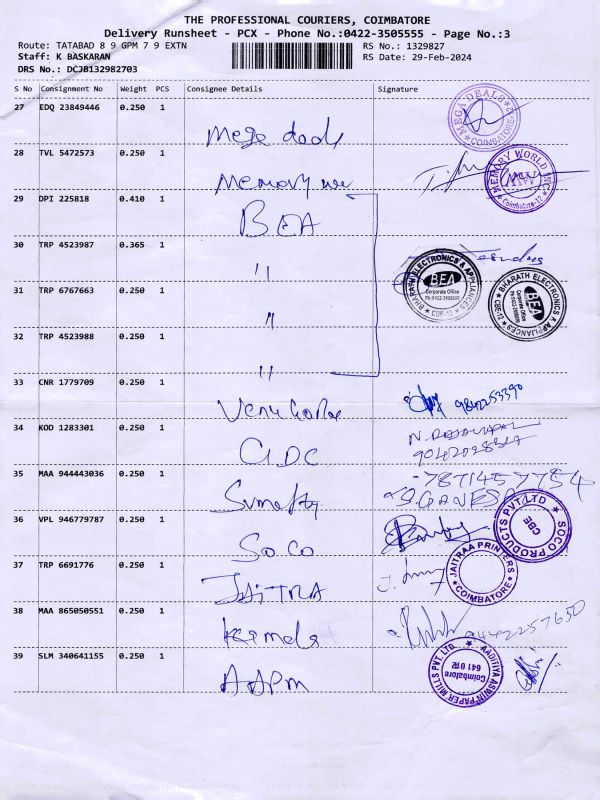 THE PROFESSIONAL COURIERS, COIMBATORE
Delivery Runsheet - PCX - Phone No.:0422-3505555 - Page No.:3
Route: TATABAD 8 9 GPM 7 9 EXTN
RS No.: 1329827
Staff: K BASKARAN
RS Date: 29-Feb-2024
DRS No.: DCJB132982703
S No Consignment No Weight PCS Consignee Details Signature
27 EDQ 23849446 0.250 1
MEGA DEALS
COIMBATORE
28 TVL 5472573 0.250 1
Memory
MEMORY WORLD INC
MW
Coimbatore-12
29 DPI 225818 0.410 1
BEA
30 TRP 4523987 0.365 1
"
BHARATH ELECTRONICS & APPLIANCES
BEA
Corporate Office
CBE-12
31 TRP 6767663 0.250 1
"
BHARATH ELECTRONICS & APPLIANCES
BEA
Corporate Office
CBE-12
32 TRP 4523988 0.250 1
"
33 CNR 1779709 0.250 1
9842253390
34 KOD 1283301 0.250 1
35 MAA 944443036 0.250 1
7871457754
GANESA
36 VPL 946779787 0.250 1
SOCO
SOCO PRODUCTS PVT.LTD
CBE
37 TRP 6691776 0.250 1
JAITRA
JAITRAA PRINTERS
COIMBATORE
38 MAA 865050551 0.250 1
39 SLM 340641155 0.250 1
AAPM
AADITIYA ASWIN PAPER MILLS PVT. LTD.
Coimbatore
641 012